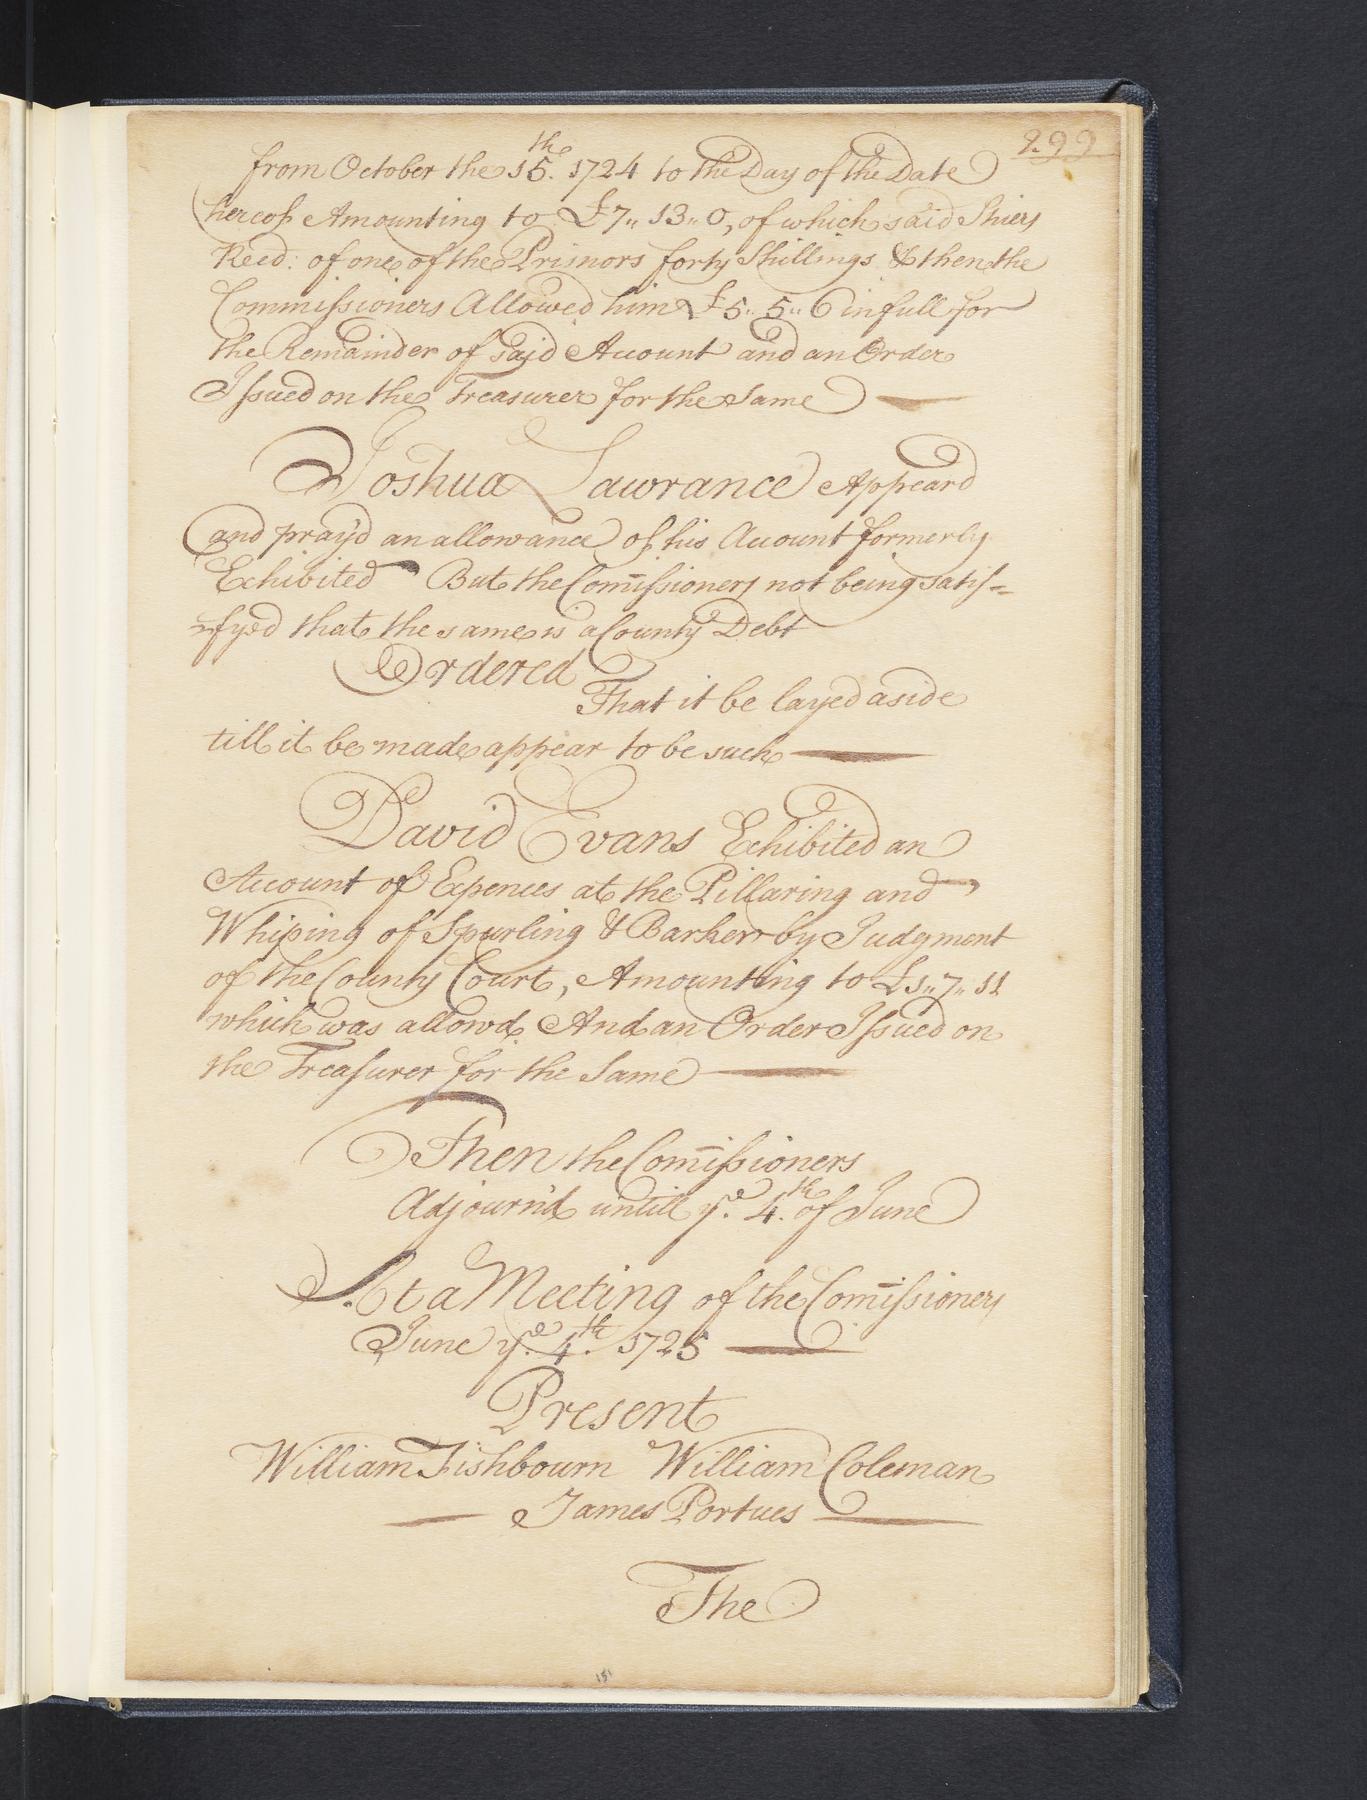 299
from October the 15th. 1724 to the Day of the Date
hereof Amounting to £7,, 13,, 0, of which said Shiers
Reed: of one of the Prisnors forty Shillings & then the
Commissioners Allowed him £5,, 5,, 6 in full for
the Remainder of said Account and an Order
Issued on the Treasurer for the Same
Joshua Lawrance Appeard
and pray'd an allowance of his Account formerly
Exhibited But the Comissioners not being satis=
=fyed that the same is a County Debt
Ordered
That it be layed aside
till it be made appear to be such
David Evans Exhibited an
Account of Expences at the Pillaring and
Whiping of Spurling & Barker by Judgment
of the County Court, Amounting to £1,, 7,, 11
which was allowd. And an Order Issued on
the Treasurer for the Same
Then the Comissioners
Adjourn'd untill ye. 4th. of June
At a Meeting of the Comissioners
June ye. 4th. 1725
Present
William Fishbourn William Coleman
James Portues
The
151